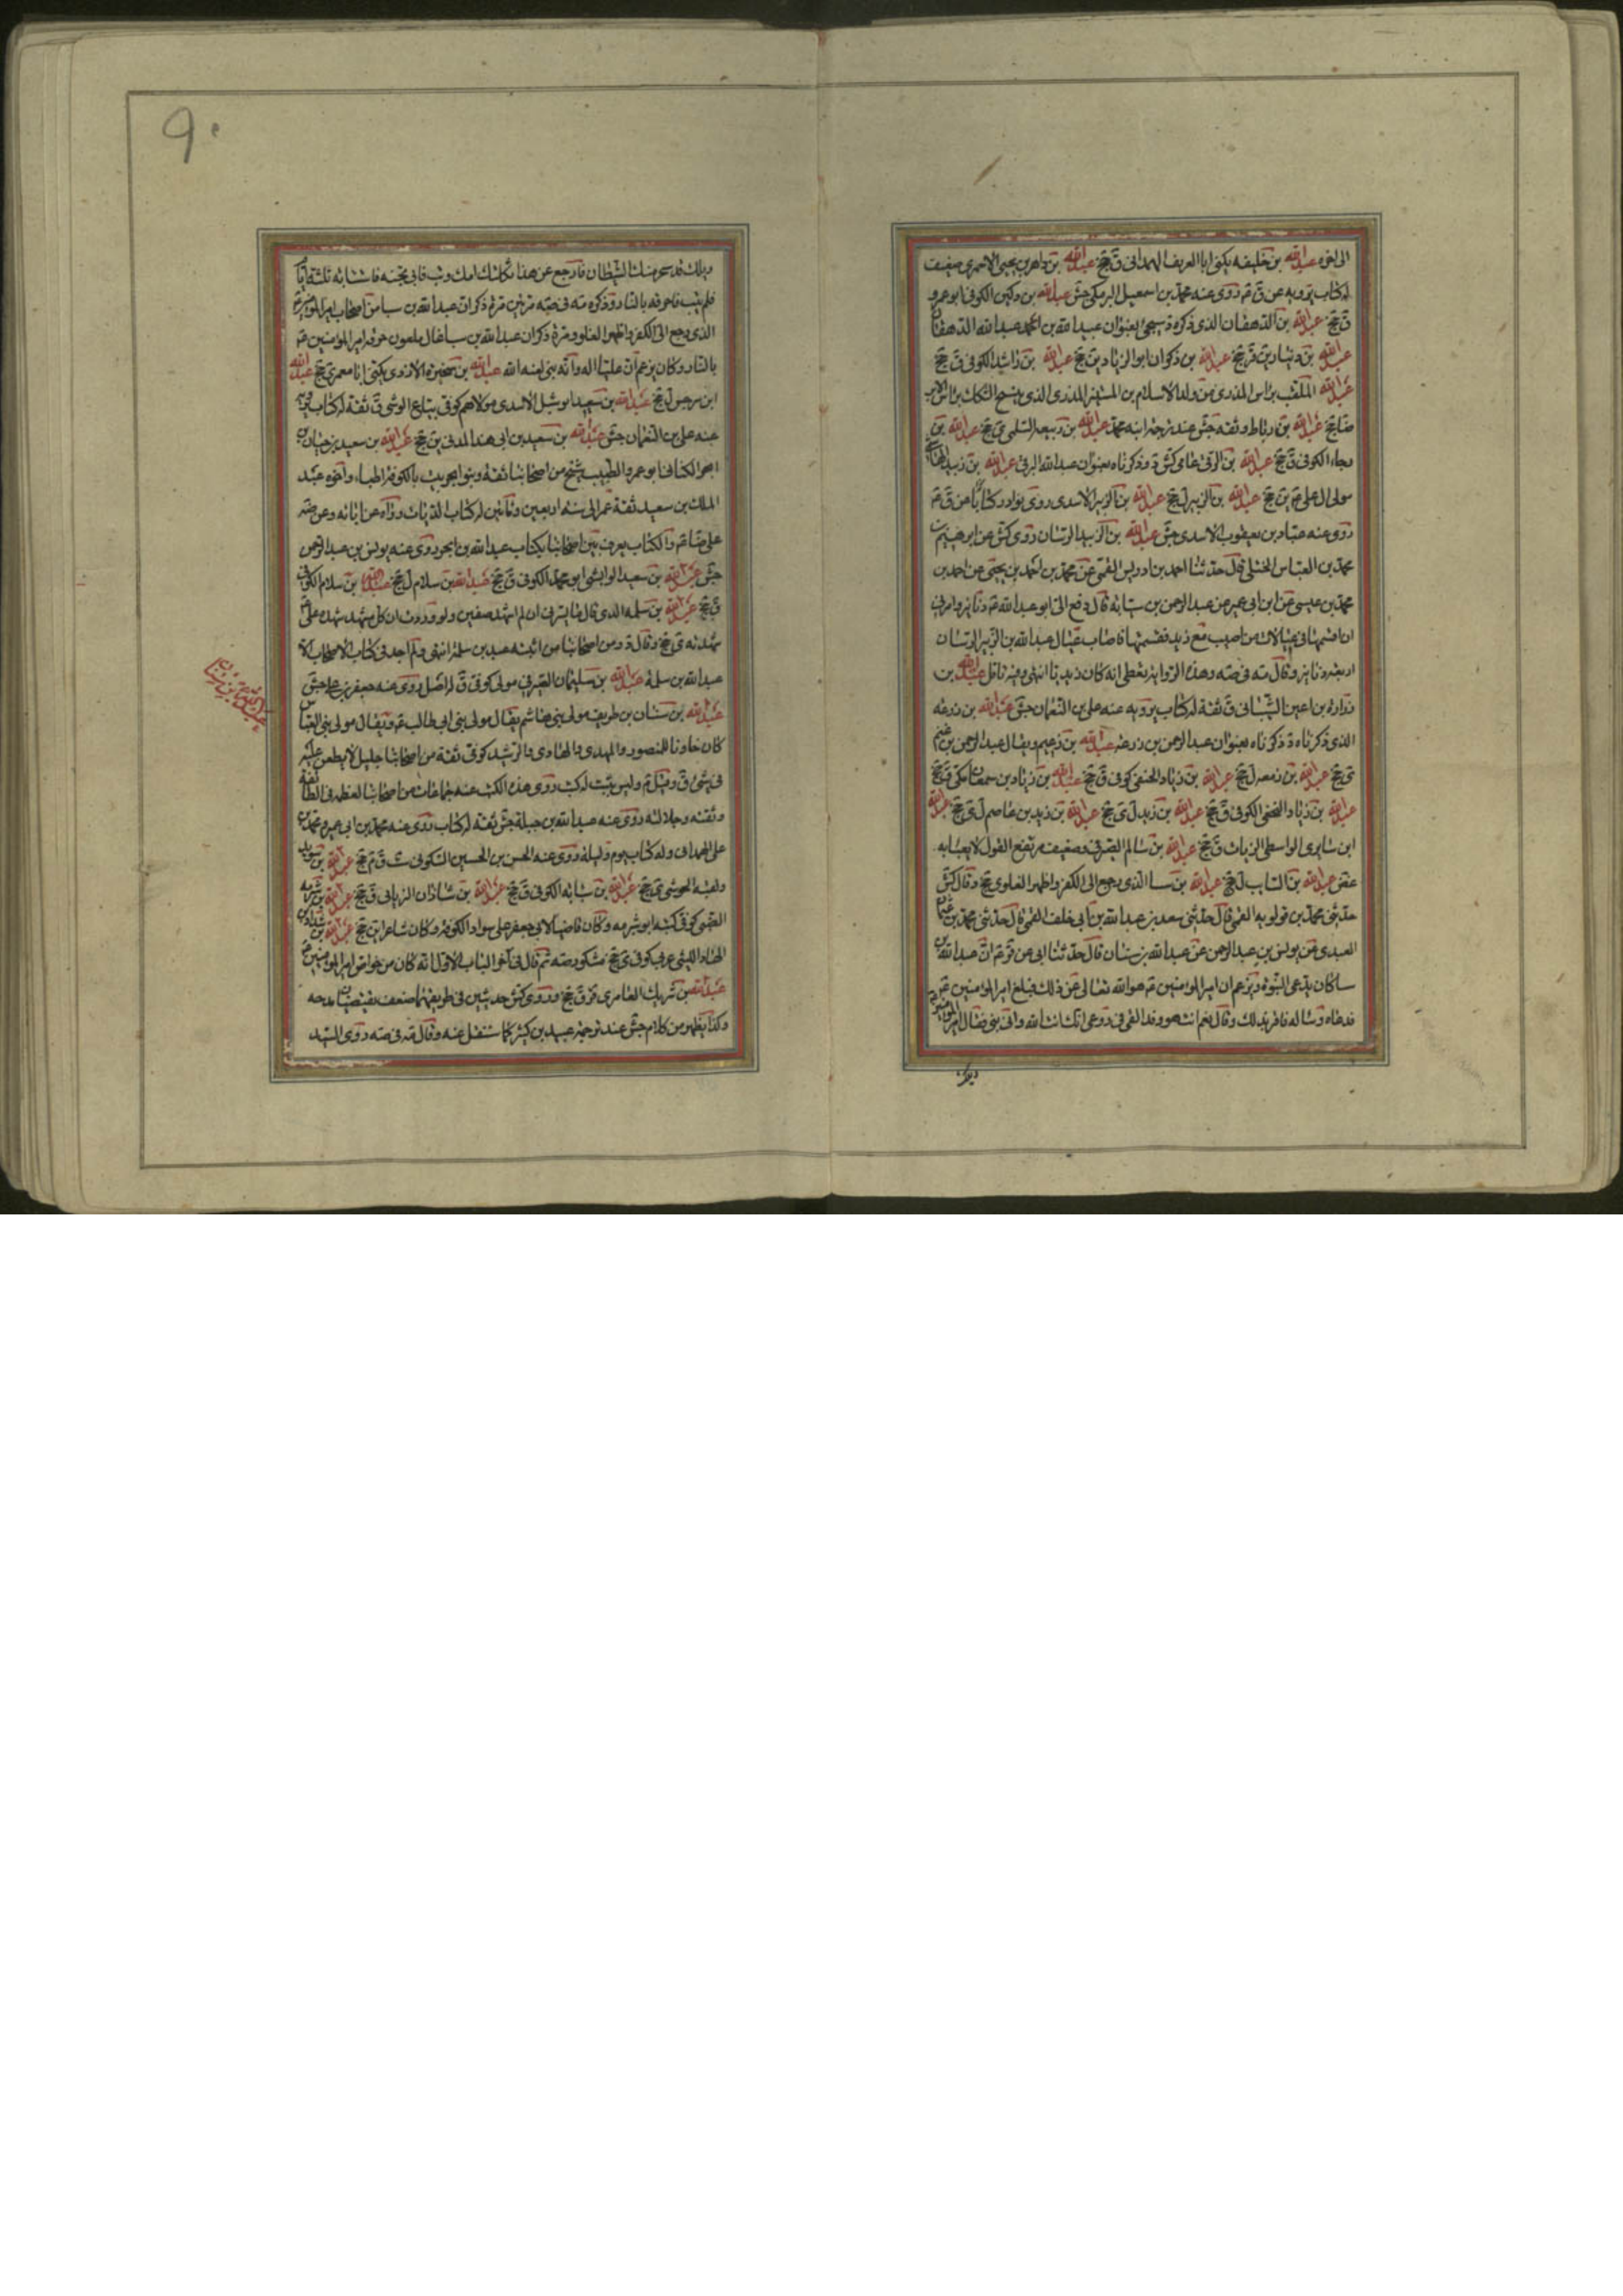 الى اخره عبدالله بن خليفه يكنى ابا العريف الهمدانى ق جخ عبدالله بن داهر بن يحيى الاحمرى ضعيف
له كتاب يرويه عن ق م روى عنه محمد بن اسمعيل البرمكى جش عبدالله بن دكين الكوفى ابو عمرو
ق جخ عبدالله بن الدهقان الذى ذكره د سيجئ بعنوان عبيد الله بن احمد عبدالله الدهقان
عبدالله بن دينار ين ق جخ عبدالله بن ذكوان ابو الزناد ين جخ عبدالله بن راشد الكوفى ق جخ
عبدالله الملقب براس المذرى من ولد الاسلام بن
جخ عبدالله بن رباط وثقه جش عند ترجمة ابنه محمد عبدالله بن ربيعه السلمى ى جخ عبدالله بن
رجاء الكوفى ق جخ عبدالله بن الرقى عامى كش د وذكرناه بعنوان عبدالله البرقى عبدالله بن زبيد
مولى ال على ع ين جخ عبدالله بن الزبير ل جخ عبدالله بن الزبير الاسدى روى نوادر كتابا عن ق ع
روى عنه عباد بن يعقوب الاسدى جش عبدالله بن الزبير الرسان روى كش عن ابرهيم بن
محمد بن العباس الختلى قال حدثنا احمد بن ادريس القمى عن محمد بن احمد بن يحيى عن احمد بن
محمد بن عيسى عن ابن ابى عمير عن عبدالرحمن بن سيابه قال دفع الى ابو عبدالله ع دنانير وامرنى
ان اقسمها فى عيالات من اصيب مع زيد فقسمتها فاصاب عيال عبدالله بن الزبير الرسان
اربعه دنانير وقال مه فى صه وهذه الرواية تعطى انه كان زيديا انتهى وفيه تامل عبدالله بن
زراره بن اعين الشيبانى ق ثقة له كتاب يرويه عنه على بن النعمان جش عبدالله بن زرعه
الذى ذكرناه د ذكرناه بعنوان عبدالرحمن بن زرعه عبدالله بن زعيم ويقال عبدالرحمن بن
ى جخ عبدالله بن زمعه ل جخ عبدالله بن زياد الحنفى كوفى ق جخ عبدالله بن زياد بن سمعان مكى ق جخ
عبدالله بن زياد النخعى الكوفى ق جخ عبدالله بن زيد ل ى جخ عبدالله بن زيد بن عاصم ل ى جخ عبدالله
ابن سابرى الواسطى الزيات ق جخ عبدالله بن سالم الصيرفى ضعيف مرتفع القول لا يعبا به
غض عبدالله بن السايب ل جخ عبدالله بن سبا الذى رجع الى الكفر واظهر الغلو ى جخ وقال كش
حدثنى محمد بن قولويه القمى قال حدثنى سعد بن عبدالله بن ابى خلف القمى قال حدثنى محمد بن عثمان
العبدى عن يونس بن عبدالرحمن عن عبدالله بن سنان قال حدثنا ابى عن ق ع ان عبدالله بن
سبا كان يدعى النبوة ويزعم ان امير المومنين ع هو الله تعالى عن ذلك فبلغ امير المومنين ع
فدعاه وساله فاقر بذلك وقال نعم انت هو وقد القى فى روعى انك انت الله وانى نبى فقال امير المومنين
ويلك
٩٠
ويلك قد سخر منك الشيطان فارجع عن هذا ثكلتك امك وتب فابى فحبسه فاستتابه ثلثة ايام
فلم يتب فاحرقه بالنار وذكره مه فى صه مرتين مرة ذكر ان عبدالله بن سبا من اصحاب امير المومنين ع
الذى رجع الى الكفر واظهر الغلو ومرة ذكر ان عبدالله بن سبا غال ملعون حرقه امير المومنين ع
بالنار وكان يزعم ان عليا اله وانه نبى لعنه الله عبدالله بن سخبره الازدى يكنى ابا معمر ى جخ عبدالله
ابن سرجس ل جخ عبدالله بن سعيد ابو شبل الاسدى مولاهم كوفى بياع الوشى ق ثقة له كتاب يرويه
عنه على بن النعمان جش عبدالله بن سعيد بن ابى هند المدنى ين جخ عبدالله بن سعيد بن حيان بن
ابجر الكنانى ابو عمرو الطبيب شيخ من اصحابنا ثقة وبنو ابجر بيت بالكوفة اطباء واخوه عبد
الملك بن سعيد ثقة عمر الى سنه اربعين ومائتين له كتاب الديات رواه عن ابائه وعرضه
على ضا ع والكتاب يعرف بين اصحابنا بكتاب عبدالله بن ابجر روى عنه يونس بن عبدالرحمن
جش عبدالله بن سعيد الوابشى ابو محمد الكوفى ق جخ عبدالله بن سلام ل جخ عبدالله بن سلام الكوفى
ق جخ عبدالله بن سلمه الذى قال ما يسرنى ان لم اشهد صفين ولوددت ان كل مشهد شهده على ع
شهدته ى جخ وقال د ومن اصحابنا من اثبته عبيد بن سلمة انتهى ولم اجد فى كتاب الاصحاب الا
عبدالله بن سلمة عبدالله بن سليمان الصيرفى مولى كوفى ق له اصل روى عنه جعفر بن على جش
عبدالله بن سنان بن طريف مولى بنى هاشم يقال مولى بنى ابى طالب ع ويقال مولى بنى العباس
كان خازنا للمنصور والمهدى والهادى والرشيد كوفى ثقة من اصحابنا جليل لا يطعن عليه
فى شئ ق وقيل م وليس بثبت له كتب روى هذه الكتب عنه جماعات من اصحابنا لعظمه فى الطائفة
وثقته وجلالته روى عنه عبدالله بن جبلة جش ثقة له كتاب روى عنه محمد بن ابى عمير ومحمد بن
على الهمدانى وله كتاب يوم وليلة روى عنه الحسن بن الحسين السكونى ست ق م جخ عبدالله بن سويد
ى جخ عبدالله بن سيابه الكوفى ق جخ عبدالله بن شاذان ق جخ عبدالله بن شبرمه
الضبى كوفى كنيته ابو شبرمه وكان قاضيا لابى جعفر على سواد الكوفة وكان شاعرا ين جخ عبدالله بن شداد بن
الهاد الليثى عربى كوفى ى جخ مشكور صه ثم قال فى آخر الباب الاول انه كان من خواص امير المومنين ع
عبدالله بن شريك العامرى قر ق جخ وروى كش حديثين فى طريقهما ضعف يقتضيان مدحه
وكذا يظهر من كلام جش عند ترجمة عبيد بن كثير كما سننقل عنه وقال مه فى صه روى السيد